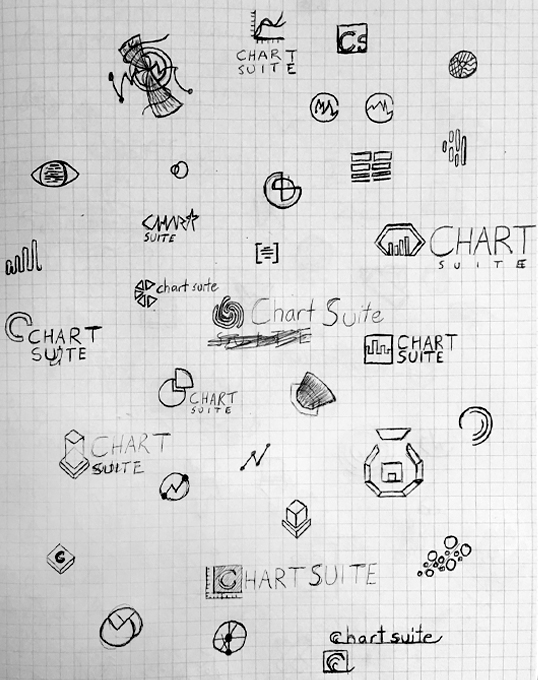 CHART
SUITE
Cs
CHART
SUITE
CHART
SUITE
chart suite
Chart Suite
CHART
SUITE
CHART
SUITE
CHART
SUITE
CHART
SUITE
C
CHART SUITE
chart suite